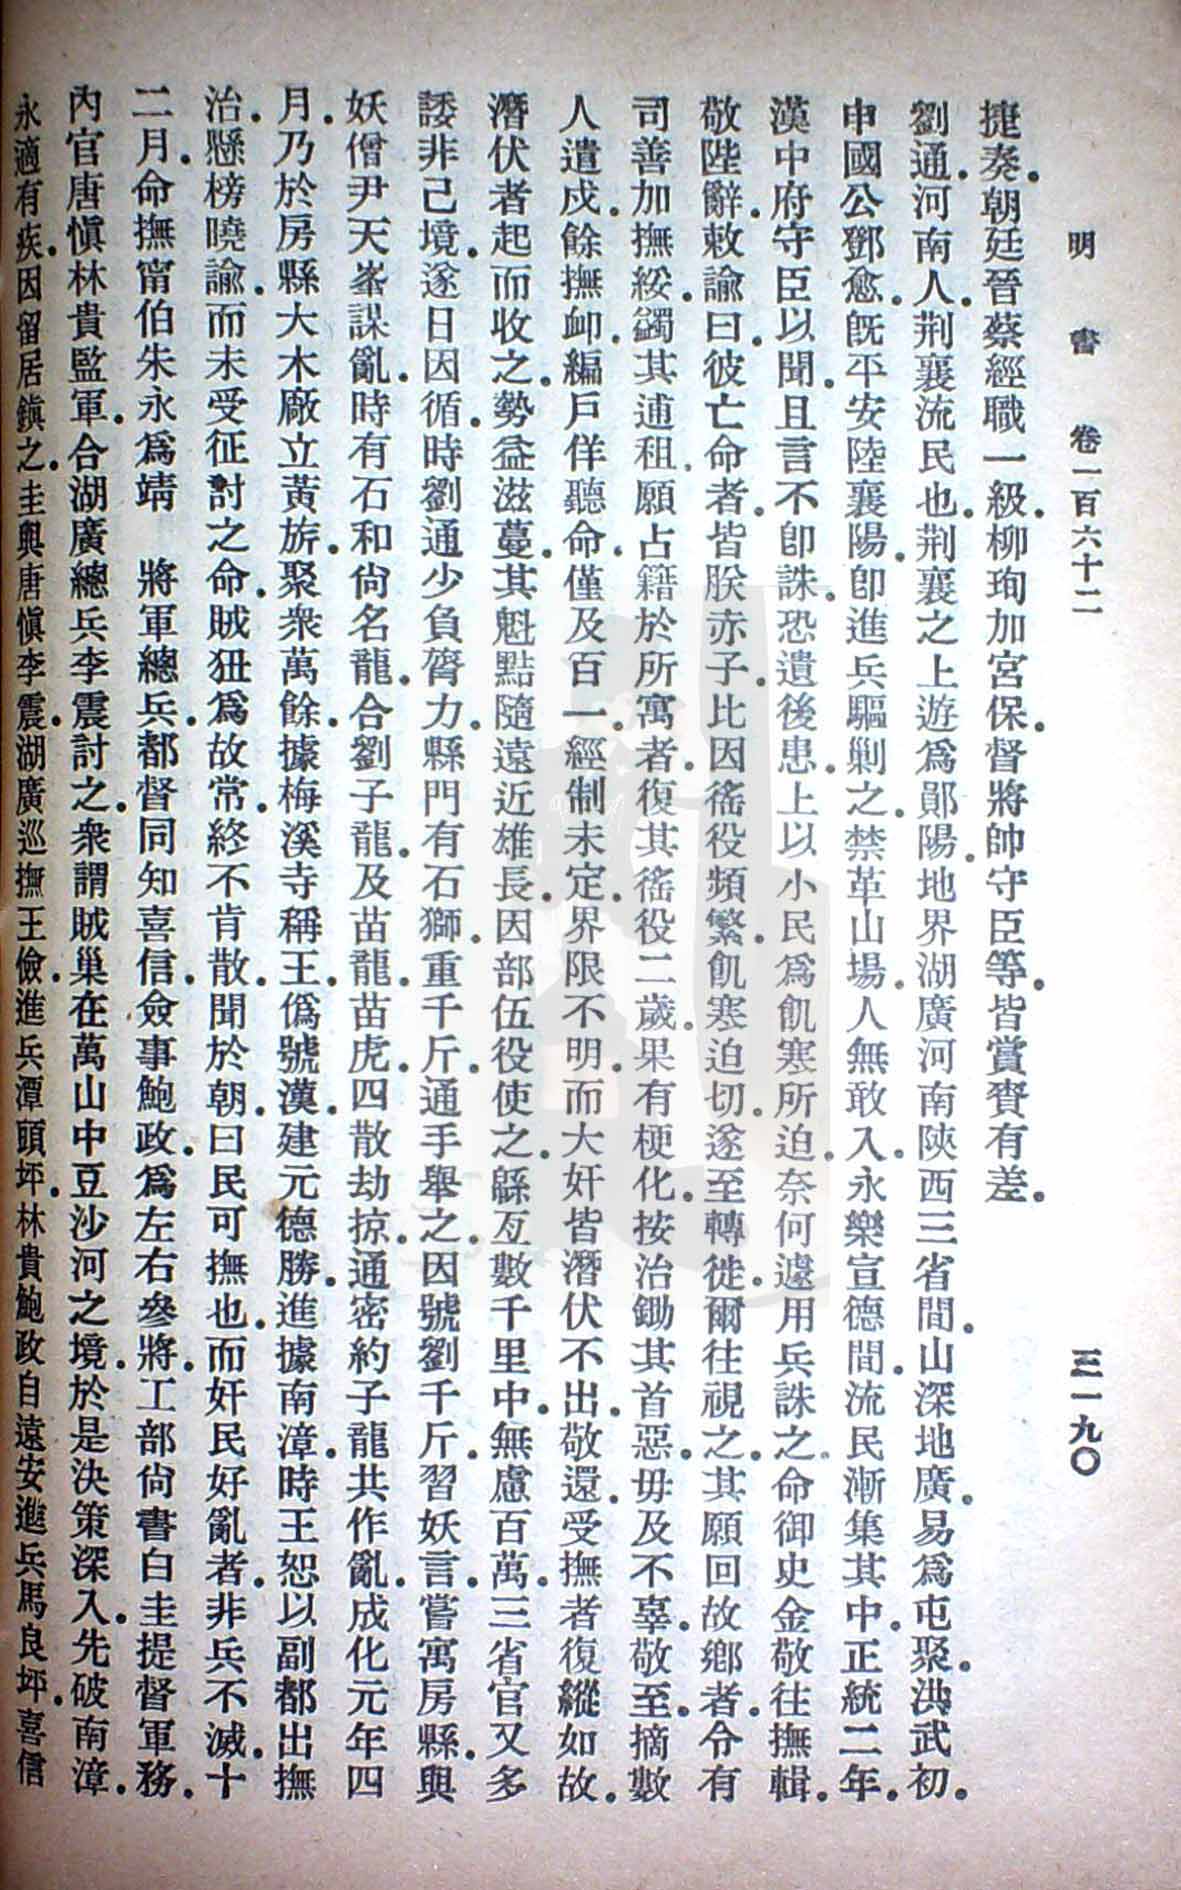 明書 卷一百六十二 三一九〇
捷奏.朝廷晉蔡經職一級.柳珣加宮保.督將帥守臣等.皆賞賚有差.
劉通.河南人.荆襄流民也.荆襄之上遊爲鄖陽.地界湖廣河南陝西三省間.山深地廣.易爲屯聚.洪武初.
申國公鄧愈.旣平安陸襄陽.卽進兵驅剿之.禁革山場.人無敢入.永樂宣德間.流民漸集其中.正統二年.
漢中府守臣以聞.且言不卽誅.恐遺後患.上以小民爲飢寒所迫.奈何遽用兵誅之.命御史金敬往撫輯.
敬陛辭.敕諭曰.彼亡命者.皆朕赤子.比因徭役頻繁.飢寒迫切.遂至轉徙.爾往視之.其願回故鄕者.令有
司善加撫綏.蠲其逋租.願占籍於所寓者.復其徭役二歲.果有梗化.按治鋤其首惡.毋及不辜.敬至.摘數
人遣戍.餘撫卹.編戶佯聽命.僅及百一.經制未定.界限不明.而大奸皆潛伏不出.敬還.受撫者復縱如故.
潛伏者起而收之.勢益滋蔓.其魁點隨遠近雄長.因部伍役使之.緜亙數千里中.無慮百萬.三省官又多
諉非己境.遂日因循.時劉通少負膂力.縣門有石獅.重千斤.通手舉之.因號劉千斤.習妖言.嘗寓房縣.與
妖僧尹天峯謀亂.時有石和尙名龍.合劉子龍.及苗龍.苗虎.四散劫掠.通密約子龍共作亂.成化元年四
月.乃於房縣大木廠立黃旂.聚衆萬餘.據梅溪寺稱王.僞號漢.建元德勝.進據南漳.時王恕以副都出撫
治.懸榜曉諭.而未受征討之命.賊狃爲故常.終不肯散.聞於朝.曰民可撫也.而奸民好亂者.非兵不滅.十
二月.命撫甯伯朱永爲靖 將軍總兵.都督同知喜信.僉事鮑政.爲左右參將.工部尙書白圭提督軍務.
內官唐愼林貴監軍.合湖廣總兵李震討之.衆謂賊巢在萬山中豆沙河之境.於是決策深入.先破南漳.
永適有疾.因留居鎭之.圭與唐愼李震.湖廣巡撫王儉.進兵潭頭坪.林貴鮑政自遠安進兵馬良坪.喜信